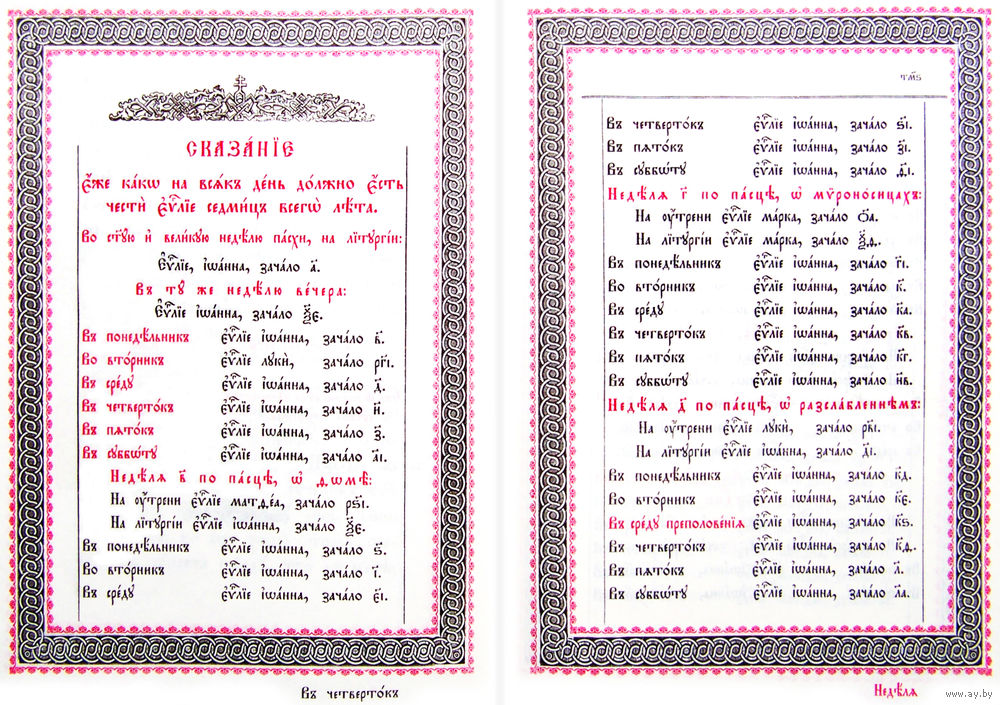 СКАЗА́НЇЕ
Є҆́же ка́кѡ на всѧ́къ де́нь до́лжно є҆́сть
честѝ є҆ѵⷢ҇лїе седми́цъ всегѡ̀ лѣ́та.
Во ст҃ꙋ́ю и҆ вели́кꙋю недѣ́лю па́схи, на лїтꙋргі́и:
Є҆ѵⷢ҇лїе, і҆ѡа́нна, зача́ло а҃.
Въ тꙋ́ же недѣ́лю ве́чера:
Є҆ѵⷢ҇лїе і҆ѡа́нна, зача́ло ѯ҃є.
Въ понедѣ́льникъ є҆ѵⷢ҇лїе і҆ѡа́нна, зача́ло в҃.
Во вто́рникъ є҆ѵⷢ҇лїе лꙋкѝ, зача́ло рг҃і.
Въ сре́дꙋ є҆ѵⷢ҇лїе і҆ѡа́нна, зача́ло д҃.
Въ четверто́къ є҆ѵⷢ҇лїе і҆ѡа́нна, зача́ло и҃.
Въ пѧто́къ є҆ѵⷢ҇лїе і҆ѡа́нна, зача́ло з҃.
Въ сꙋббѡ́тꙋ є҆ѵⷢ҇лїе і҆ѡа́нна, зача́ло а҃і.
Недѣ́лѧ в҃ по па́сцѣ, ѡ҆ ѳѡмѣ̀:
На ᲂу҆́трени є҆ѵⷢ҇лїе матѳе́а, зача́ло рѕ҃і.
На лїтꙋргі́и є҆ѵⷢ҇лїе і҆ѡа́нна, зача́ло ѯ҃є.
Въ понедѣ́льникъ є҆ѵⷢ҇лїе і҆ѡа́нна, зача́ло ѕ҃.
Во вто́рникъ є҆ѵⷢ҇лїе і҆ѡа́нна, зача́ло і҃.
Въ сре́дꙋ є҆ѵⷢ҇лїе і҆ѡа́нна, зача́ло є҃і.
Въ четверто́къ
тм҃ѕ
Въ четверто́къ є҆ѵⷢ҇лїе і҆ѡа́нна, зача́ло ѕ҃і.
Въ пѧто́къ є҆ѵⷢ҇лїе і҆ѡа́нна, зача́ло з҃і.
Въ сꙋббѡ́тꙋ є҆ѵⷢ҇лїе і҆ѡа́нна, зача́ло д҃і.
Недѣ́лѧ г҃ по па́сцѣ, ѡ҆ мѵ̈роно́сицахъ:
На ᲂу҆́трени є҆ѵⷢ҇лїе ма́рка, зача́ло ѻ҃а.
На лїтꙋргі́и є҆ѵⷢ҇лїе ма́рка, зача́ло ѯ҃ѳ.
Въ понедѣ́льникъ є҆ѵⷢ҇лїе і҆ѡа́нна, зача́ло г҃і.
Во вто́рникъ є҆ѵⷢ҇лїе і҆ѡа́нна, зача́ло к҃.
Въ сре́дꙋ є҆ѵⷢ҇лїе і҆ѡа́нна, зача́ло к҃а.
Въ четверто́къ є҆ѵⷢ҇лїе і҆ѡа́нна, зача́ло к҃в.
Въ пѧто́къ є҆ѵⷢ҇лїе і҆ѡа́нна, зача́ло к҃г.
Въ сꙋббѡ́тꙋ є҆ѵⷢ҇лїе і҆ѡа́нна, зача́ло н҃в.
Недѣ́лѧ д҃ по па́сцѣ, ѡ҆ разсла́бленнѣмъ:
На ᲂу҆́трени є҆ѵⷢ҇лїе лꙋкѝ, зача́ло рв҃і.
На лїтꙋргі́и є҆ѵⷢ҇лїе і҆ѡа́нна, зача́ло д҃і.
Въ понедѣ́льникъ є҆ѵⷢ҇лїе і҆ѡа́нна, зача́ло к҃д.
Во вто́рникъ є҆ѵⷢ҇лїе і҆ѡа́нна, зача́ло к҃є.
Въ сре́дꙋ преполове́нїѧ є҆ѵⷢ҇лїе і҆ѡа́нна, зача́ло к҃ѕ.
Въ четверто́къ є҆ѵⷢ҇лїе і҆ѡа́нна, зача́ло к҃ѳ.
Въ пѧто́къ є҆ѵⷢ҇лїе і҆ѡа́нна, зача́ло л҃.
Въ сꙋббѡ́тꙋ є҆ѵⷢ҇лїе і҆ѡа́нна, зача́ло л҃а.
Недѣ́лѧ
www.ay.by